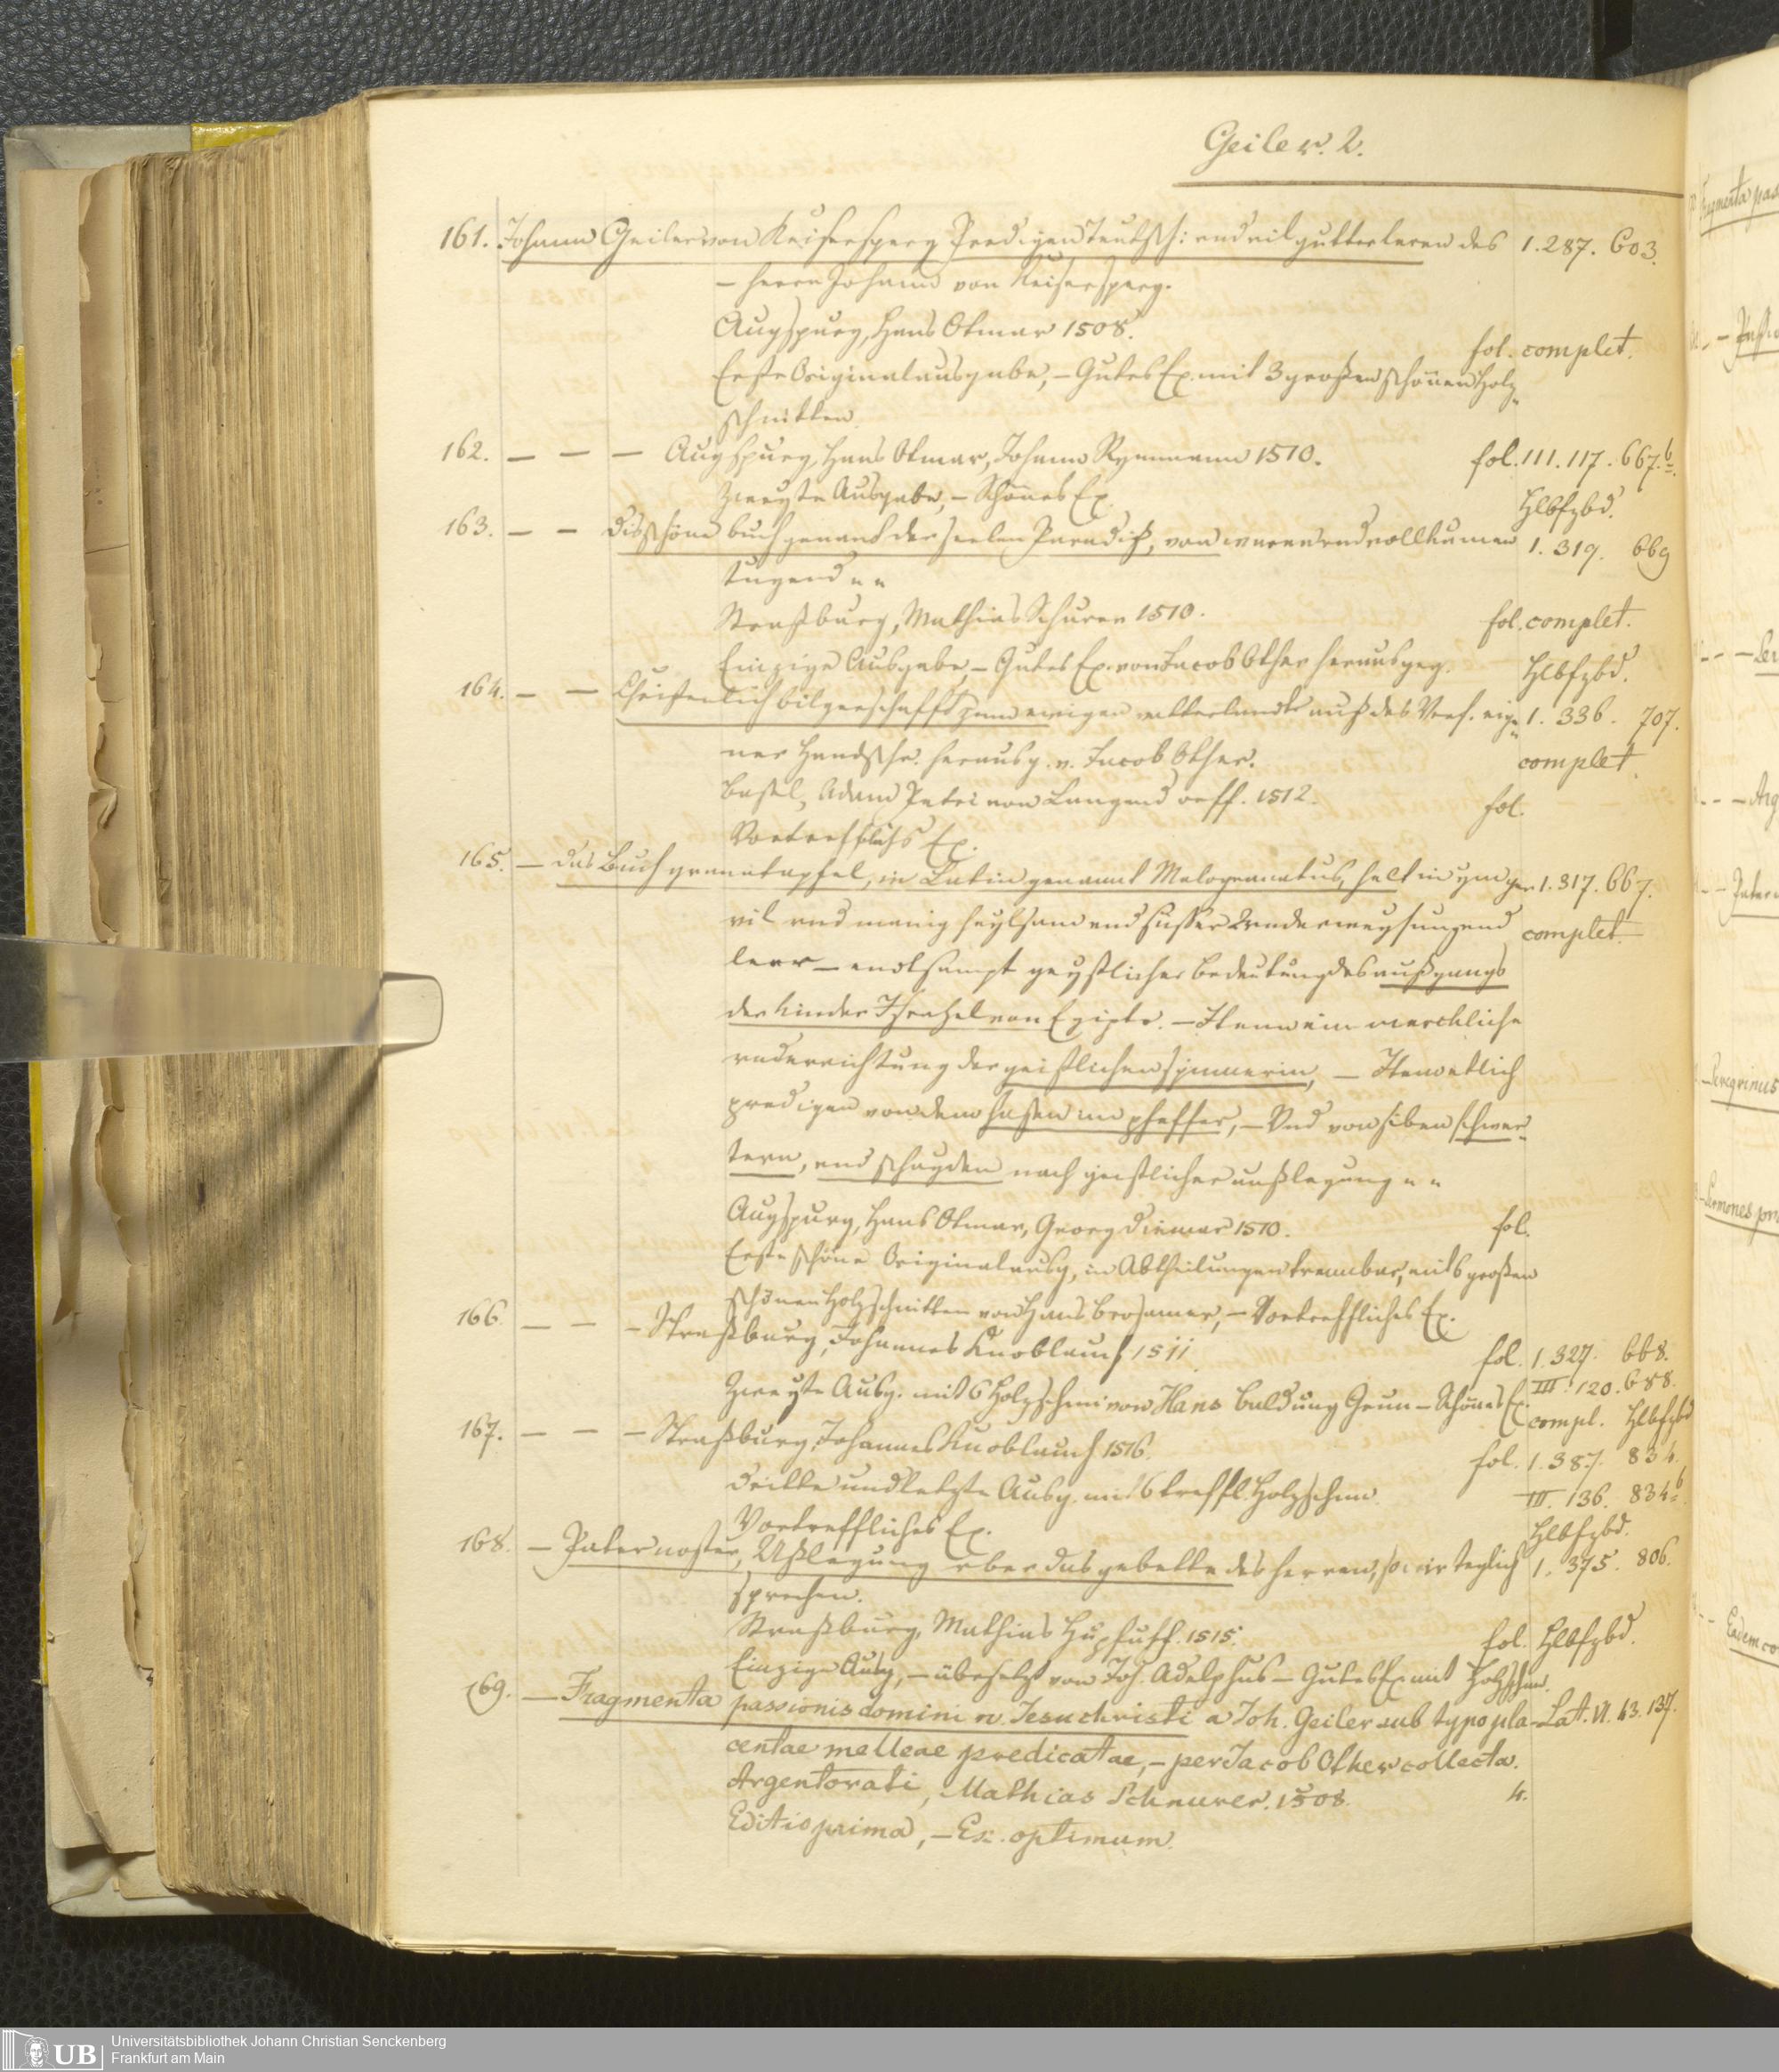 Geiler. 2.
161. Johann Geiler von Keisersperg Predigen Teutsch: und vil gutter leren des 1. 287. 603.
– herrn Johann von Keisersperg.
Augspurg, Hans Otmar 1508.
fol. complet.
Erste Originalausgabe, – Gutes Ex. mit 3 großen schönen Holz=
schnitten.
162. – – – Augspurg, Hans Otmar, Johann Rynmann 1510. fol. III. 117. 667.b
Zweyte Ausgabe, – Schönes Ex. Hlbfzbd.
163. – – Dis schöne buch genant der seelen Paradiß, von waren und vollkumen 1. 319. 669
tugend
Straßburg, Mathias Schurer 1510. fol. complet.
Einzige Ausgabe, – Gutes Ex. von Jacob Other herausgeg. Hlbfzbd.
164. – – Christenlich bilgerschafft zum ewigen vatterlandt auß des Verf. eige= 1. 336. 707.
ner Handschr. herausg. v. Jacob Other. complet.
Basel, Adam Petri von Langend orff. 1512. fol.
Vortreffliches Ex.
165. – Das Buch granatapfel, in Latin genannt Malogranatus, helt in ym gar 1. 317. 667.
vil und manig heylsam und süsser Underweysung und complet.
leer – endtsampt geystlicher bedeutung des außgangs
der kinder Israhel von Egipto. – Item ein merckliche
underrichtung der geistlichen spinnerin, – Item etlich
predigen von dem hasen im pfeffer, – Und von siben schwer=
tern, und schayden nach geistlicher außlegung
Augspurg, Hans Otmar, Georg Diemar 1510. fol.
Erste schöne Originalausg, in Abtheilungen trennbar, mit 6 großen
schönen Holzschnitten von Hans Brosamer, – Vortreffliches Ex.
166. – – – Straßburg, Johannes Knoblauch 1511. fol. 1. 327. 668.
III. 120. 688.
Zweyte Ausg. mit 6 Holzschni von Hans Baldung Grun – Schönes Ex. compl. Hlbfzbd
167. – – – Straßburg, Johannes Knoblauch 1516. fol. 1. 387. 834.
Dritte und letzte Ausg. mit 6 treffl. Holzschnn. III. 136. 834.b
Vortreffliches Ex. Hlbfzbd.
168. – Pater noster, Ußlegung über das gebette des herren, so wir teglich 1. 375. 806.
sprechen.
Straßburg, Mathias Hupfuff. 1515. fol. Hlbfzbd.
Einzige Ausg, – übersetzt von Joh. Adelphus – Gutes Ex. mit Holzschnn.
169. – Fragmenta passionis domini n. Jesu christi a Joh. Geiler sub typo pla- Lat. VI. 43. 137.
centae melleae predicatae, – per Jacob Other collecta.
Argentorati, Mathias Schnurer. 1508. 4.
Editio prima, – Ex. optimum.
Fragmenta pas
Peregrinus
Sermones pr
Eadem co
Universitätsbibliothek Johann Christian Senckenberg
Frankfurt am Main
UB